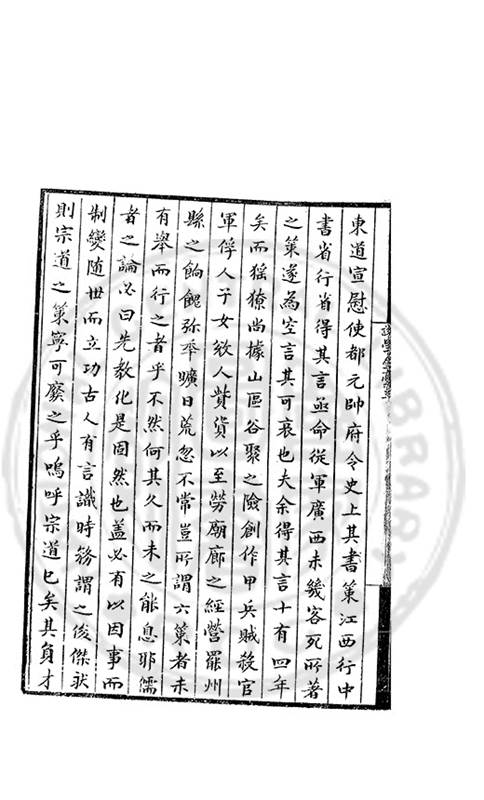 東道宣慰使都元帥府令史上其書策江西行中
書省行省得其言亟命從軍廣西未幾客死所著
之策遂為空言其可哀也夫余得其言十有四年
矣而猺獠尚據山區谷聚之險創作甲兵賊殺官
軍俘人子女欲人貲貨以至勞廟廊之經營罷州
縣之餉餽弥年曠日荒忽不常豈所謂六策者未
有舉而行之者乎不然何其久而未之能息耶儒
者之論必曰先教化是固然也盖必有以因事而
制變随世而立功古人有言識時務謂之俊傑狀
則宗道之策寧可廢之乎嗚呼宗道已矣其負才